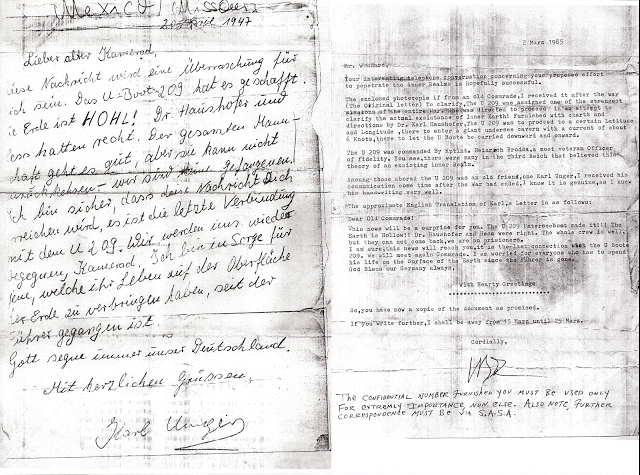 Mexico (Missouri)
1947
Lieber alter Kamerad,
iese Nachricht wird eine Überraschung für
ich sein. Das U-Boot 209 hat es geschafft.
ie Erde ist HOHL! Dr Haushofer und
ess hatten recht. Der gesamten Mann-
haft geht es gut, aber sie kann nicht
wir sind keine Gefangenen.
ch bin sicher, dass diese Nachricht Dich
rreichen wird, es ist die letzte Verbindung
mit dem U 209. Wir werden uns wieder
begegnen, Kamerad. Ich bin in Sorge für
welche ihr Leben auf der Oberfläche
er Erde zu verbringen haben, seit der
Führer gegangen ist.
Gott segne immer unser Deutschland.
Mit herzlichen Grüssen,
Karl Unger
2 Marz 1985
Mr.
Your interesting telephone conversation concerning your proposed effort
to penetrate the inner Realms is hopefully successful.
The enclosed photocopie if from an old Comarade, I received it after the war
(The original letter) To clarify, The U 209 was assigned one of the strangest
proceed in an attempt to
clarify the actual assistance of inner Earth Furnished with charts and
directions by Dr. Karl Haushofer, The U 209 was to proceed to a certain latitude
and longitude, there to enter a giant undersea cavern with a current of about
6 Knots, there to let the U Boote be carried downward and onward.
The U 209 was commanded By Kptlnt. Heinrich Brodda, a most veteran Officer
of fidelity, You see, there were many in the Third Reich that believed this
theory of an existing inner Realm.
Among those abored the U 209 was as old friend, one Karl Unger, I received his
communication some time after the War had ended, I know it is genuine, as I knew
his handwriting very well.
The approximate English Translation of Karl's letter is as follows:
Dear Old Comarade:
This news will be a surprise for you. The U 209 Interseeboot made it!!! The
Earth is Hollow!! Dr. Haushofer and Hess were right. The whole crew is well,
but they can not come back, we are no prisioneres.
I am sure, this news will reach you, it is the last connection with the U Boote
209. We will meet again Comarade. I am worried for everyone who has to spend
his life on the Surface of the Earth since the Führer is gone.
God Bless our Germany always.
With Hearty Greetings
So, you have now a xopie of the document as promised.
If you write further, I shall be away from 15 Marz until 25 Marz.
Cordially,
THE CONFIDENTIAL NUMBER FURNISHED YOU MUST BE USED ONLY
FOR EXTREMLY IMPORTANCE, NON ELSE. ALSO NOTE, FURTHER
CORRESPONDENCE MUST BE VIA S.A.S.A.